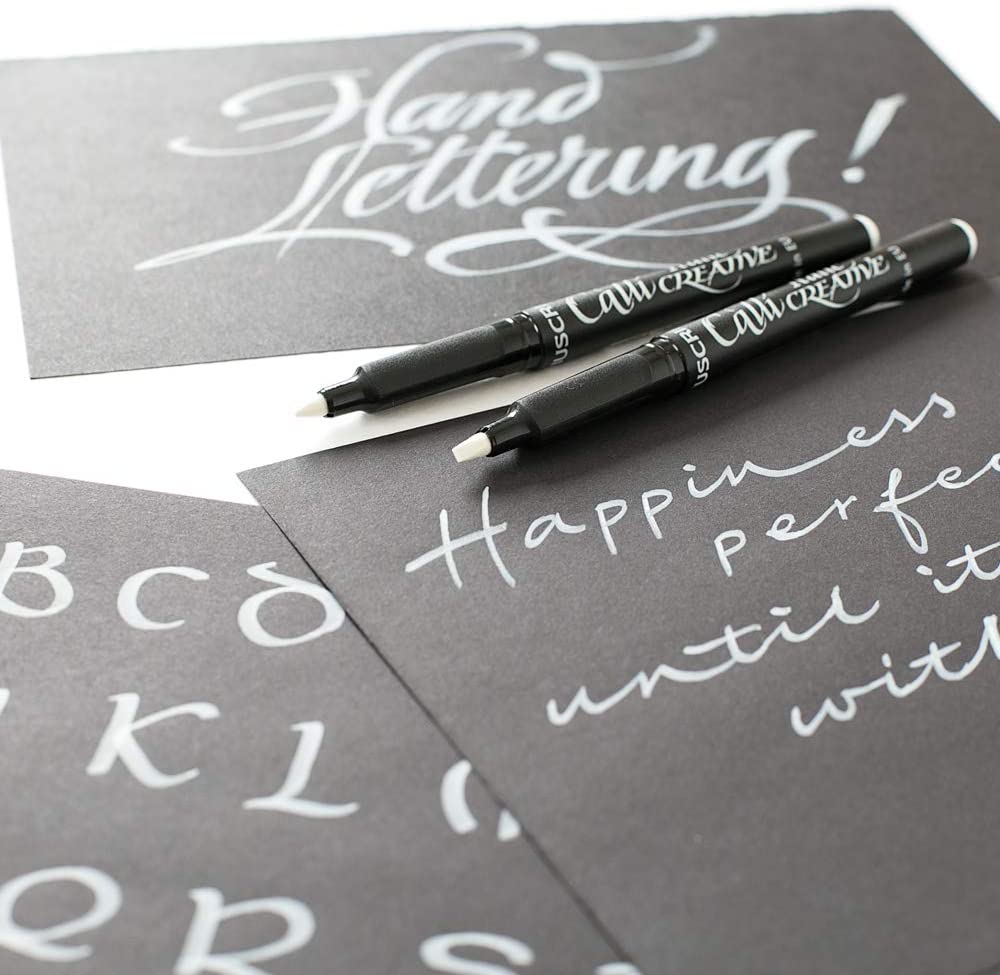 Hand
Lettering!
Calli CREATIVE
Calli CREATIVE
Happiness
perfec
until it
with
B C D
K L
Q R S